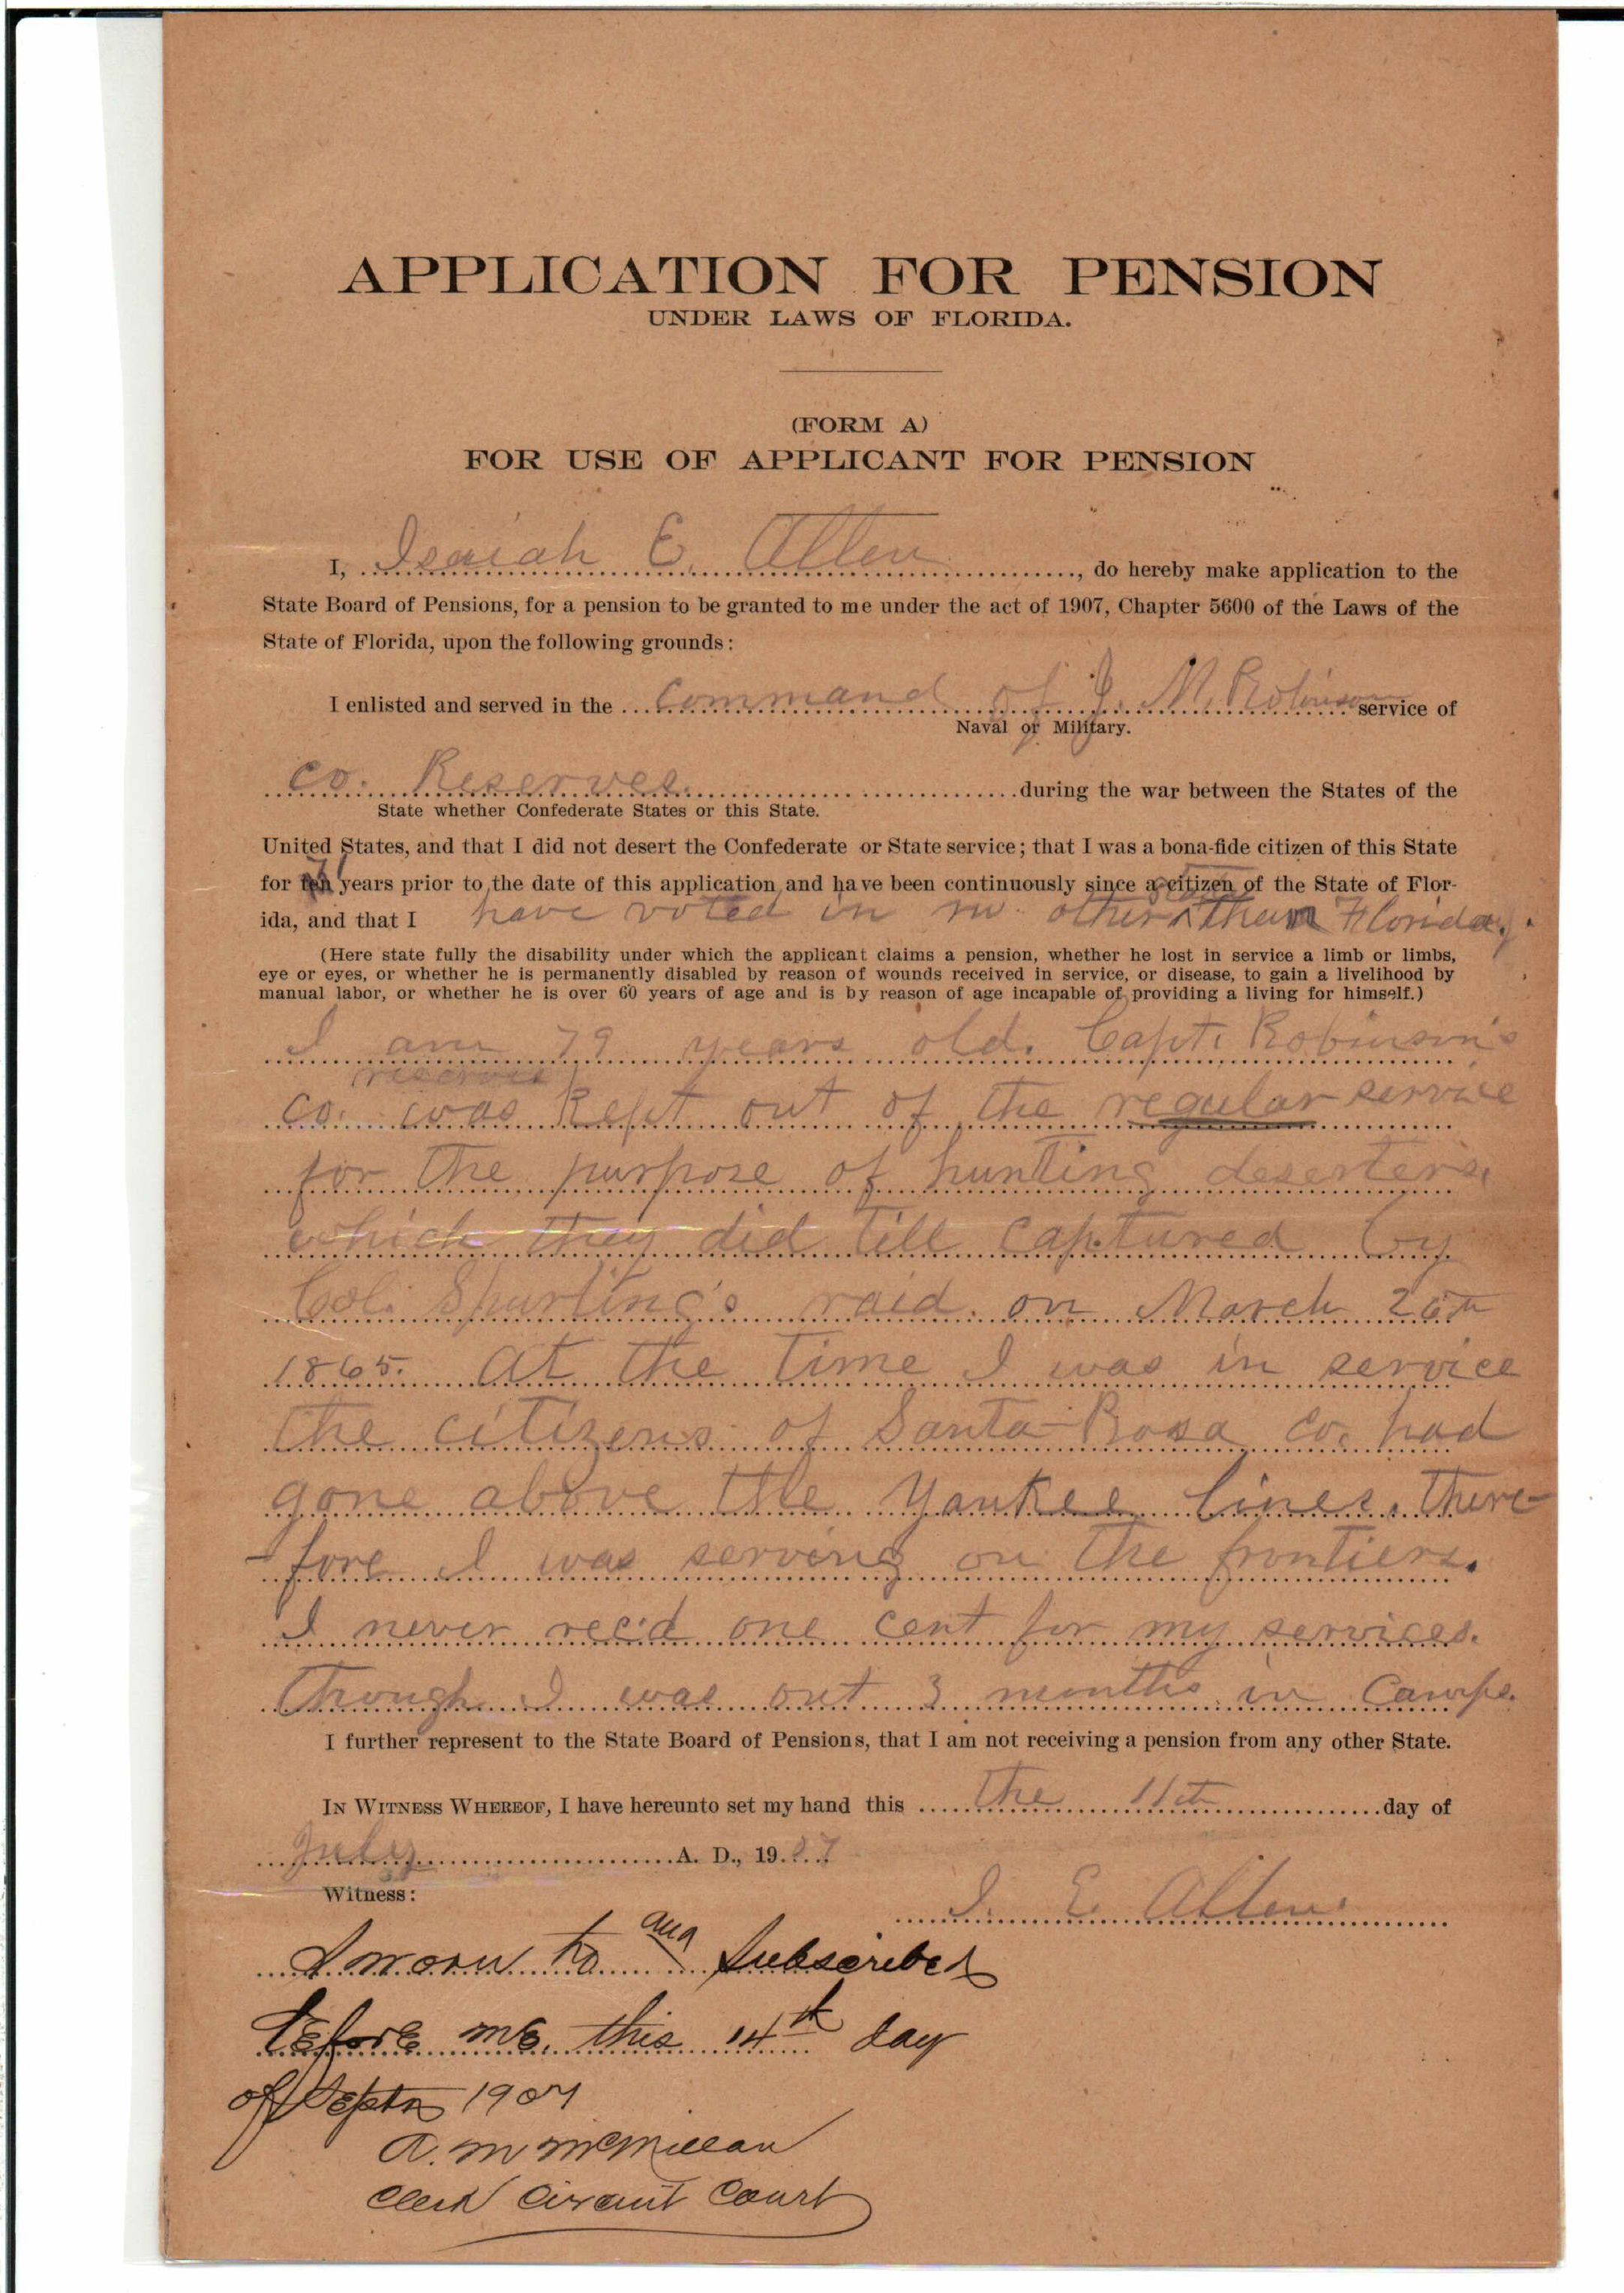 APPLICATION FOR PENSION
UNDER LAWS OF FLORIDA.
(FORM A)
FOR USE OF APPLICANT FOR PENSION
I, Isaiah E. Allen, do hereby make application to the
State Board of Pensions, for a pension to be granted to me under the act of 1907, Chapter 5600 of the Laws of the
State of Florida, upon the following grounds:
I enlisted and served in the command of J. M. Robinson service of
Naval or Military.
co. Reserves during the war between the States of the
State whether Confederate States or this State.
United States, and that I did not desert the Confederate or State service; that I was a bona-fide citizen of this State
for years prior to the date of this application and have been continuously since a citizen of the State of Flor-
ida, and that I have voted in no other state than Florida.
(Here state fully the disability under which the applicant claims a pension, whether he lost in service a limb or limbs,
eye or eyes, or whether he is permanently disabled by reason of wounds received in service, or disease, to gain a livelihood by
manual labor, or whether he is over 60 years of age and is by reason of age incapable of providing a living for himself.)
I am 79 years old. Capt. Robinson's
reserves
co. was kept out of the regular service
for the purpose of hunting deserters,
which they did till captured by
Col. Spurling's raid on March 26th
1865. At the time I was in service
the citizens of Santa-Rosa co. had
gone above the Yankee lines. there-
-fore I was serving on the frontiers.
I never rec'd one cent for my services.
though I was out 3 months in Camps.
I further represent to the State Board of Pensions, that I am not receiving a pension from any other State.
IN WITNESS WHEREOF, I have hereunto set my hand this the 11th day of
July A. D., 1907
Witness:
I. E. Allen
Sworn to and Subscribed
before me, this 14th day
of Septr 1907
A. M McMillan
Clerk Circuit Court